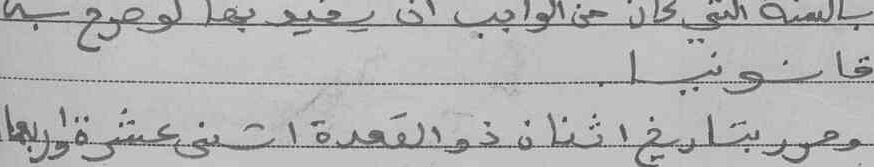 بالسنة التي كان من الواجب ان يقيد بها لو صرح به
قانونيا
وحرر بتاريخ اثنان ذو القعدة اثنى عشرة واربعما